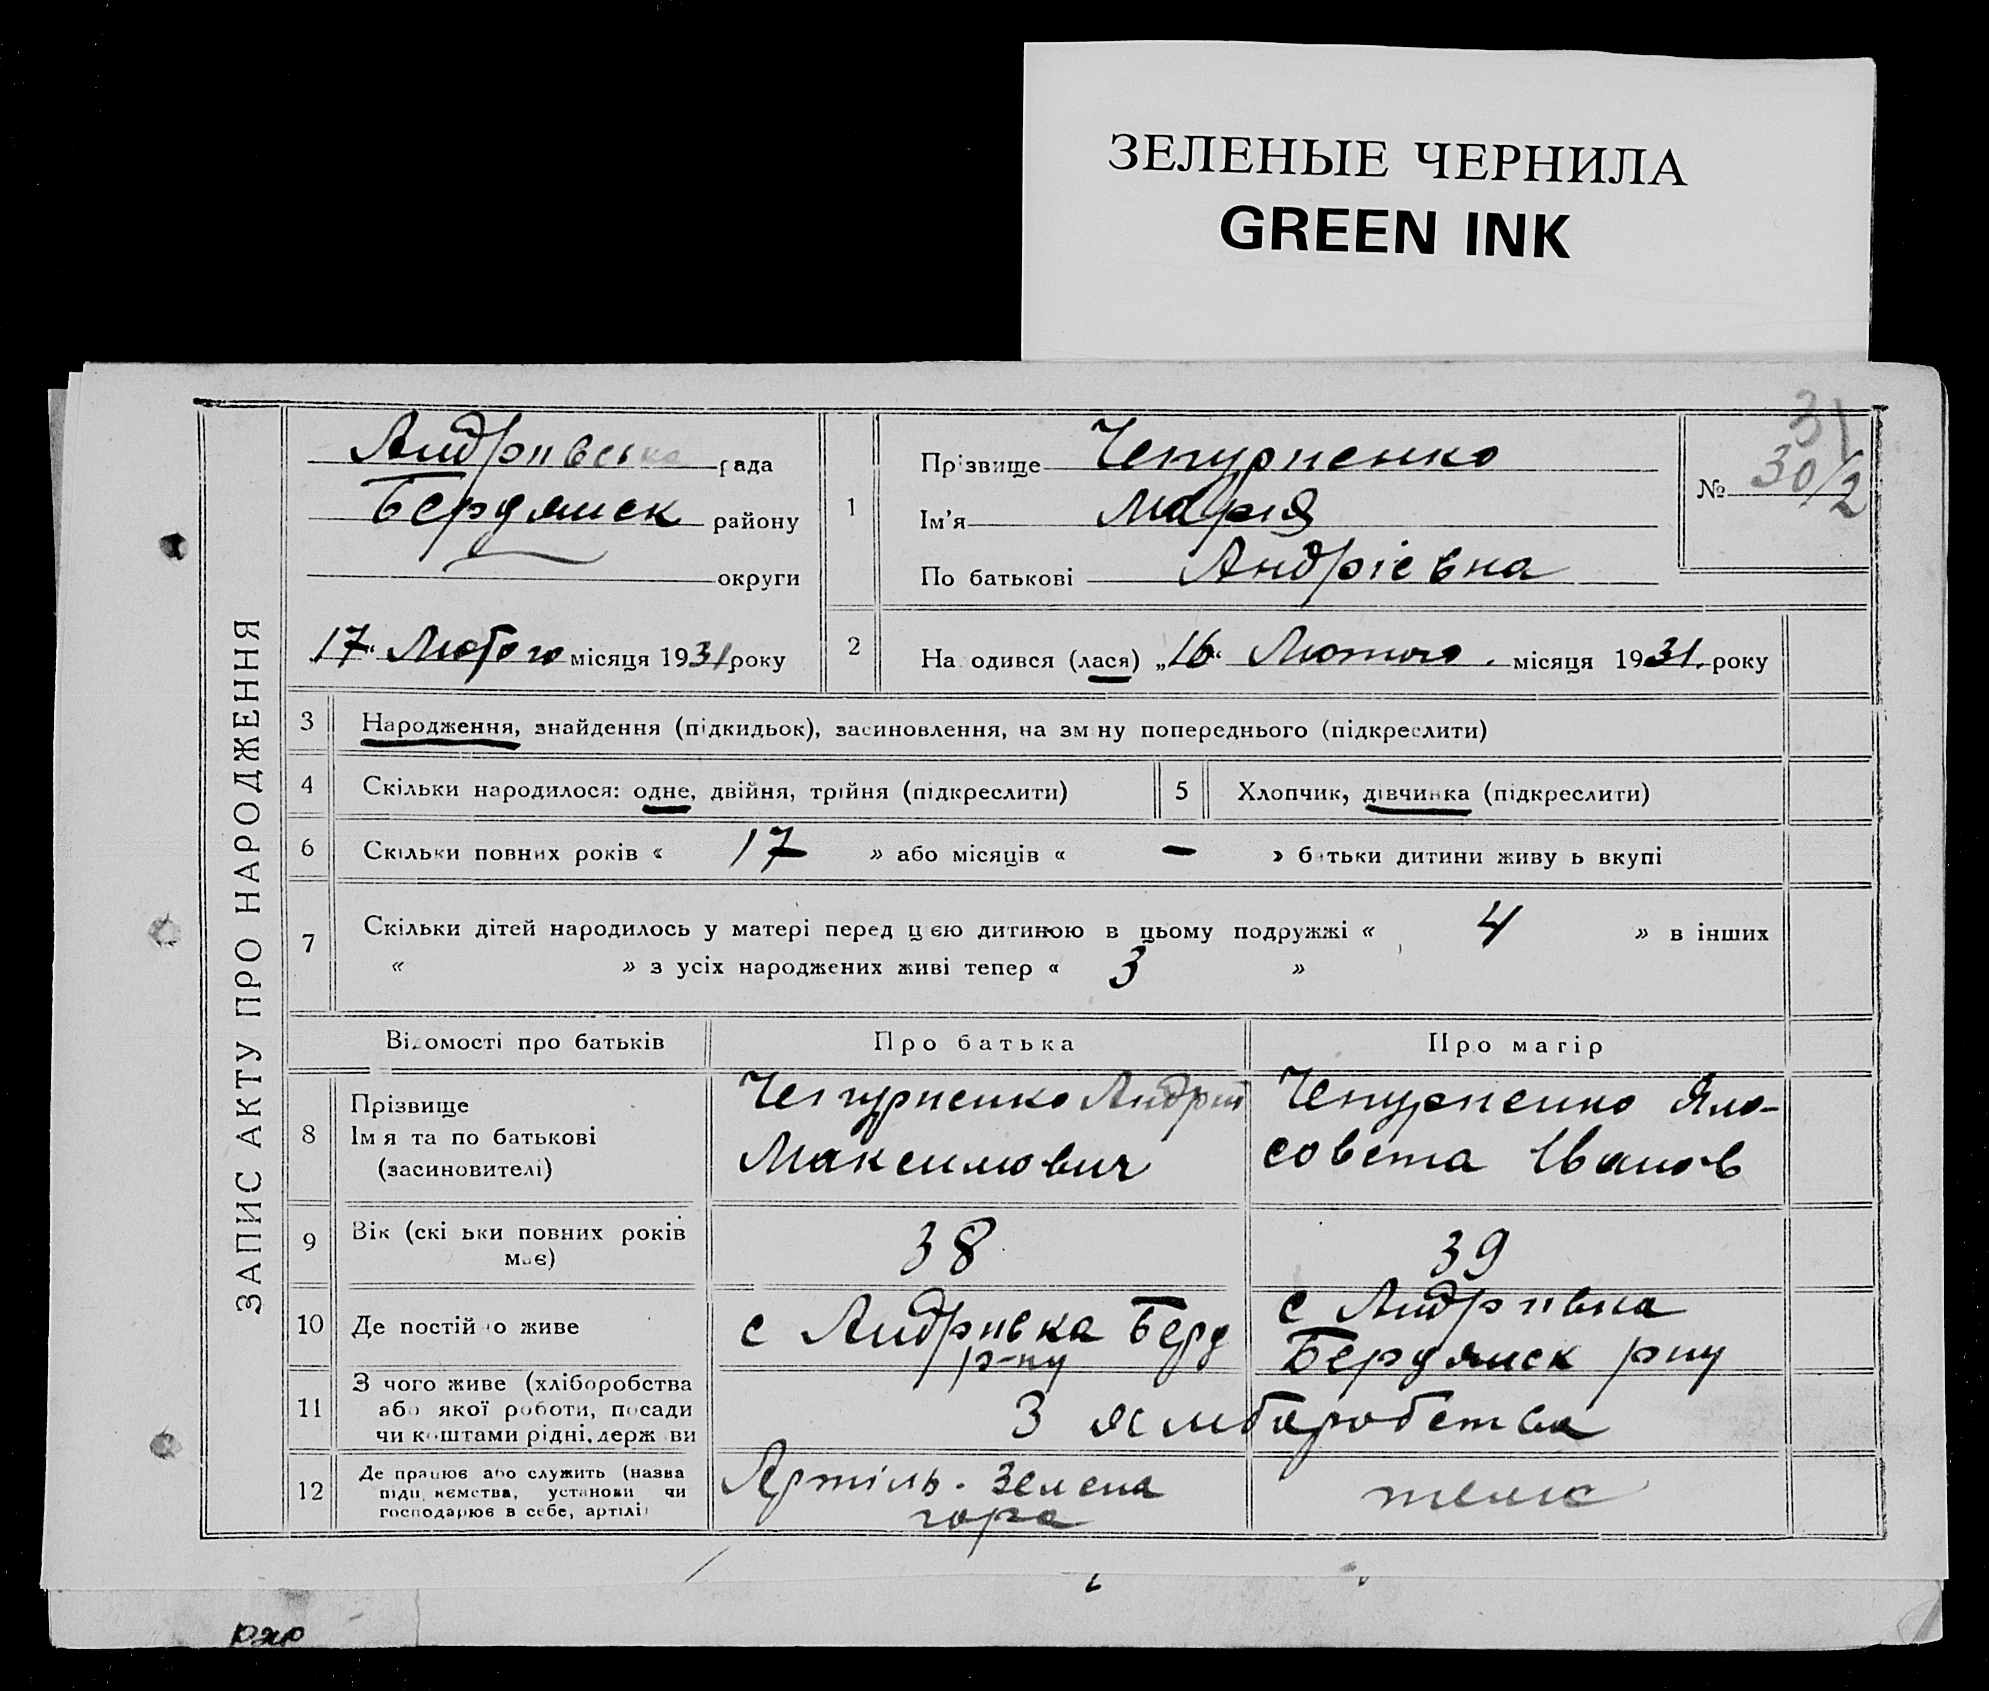 ЗЕЛЕНЫЕ ЧЕРНИЛА
GREEN INK
ЗАПИС АКТУ ПРО НАРОДЖЕННЯ
Андрпвська рада
Бердянск району
округи
17 Лютого місяця 1931 року
1
Прізвище Чепурненко
Ім'я Марія
По батькові Андрієвна
№ 31
30/2
2
На одився (лася) „16“ Лютого. місяця 1931. року
3 Народження, знайдення (підкидьок), засиновлення, на зм ну попереднього (підкреслити)
4 Скільки народилося: одне, двійня, трійня (підкреслити) 5 Хлопчик, дівчинка (підкреслити)
6 Скільки повних років « 17 » або місяців « — » батьки дитини живу ь вкупі
7 Скільки дітей народилось у матері перед цією дитиною в цьому подружжі « 4 » в інших
« » з усіх народжених живі тепер « 3 »
Відомості про батьків Про батька Про матір
8 Прізвище
Імя та по батькові
(засиновителі)
Чепурненко Андрій
Максимович
Чепурненко Яло-
совета Іванов
9 Вік (скі ьки повних років
має)
38
39
10 Де постій о живе
с Андрпвка Берд
р-ну
с Андрпвка
Бердянск рну
11 З чого живе (хліборобства
або якої роботи, посади
чи коштами рідні, держ ви
З хліборобства
12 Де працює або служить (назва
підп ємства, установи чи
господарює в себе, артілі)
Артіль. Зелена
гора
теж